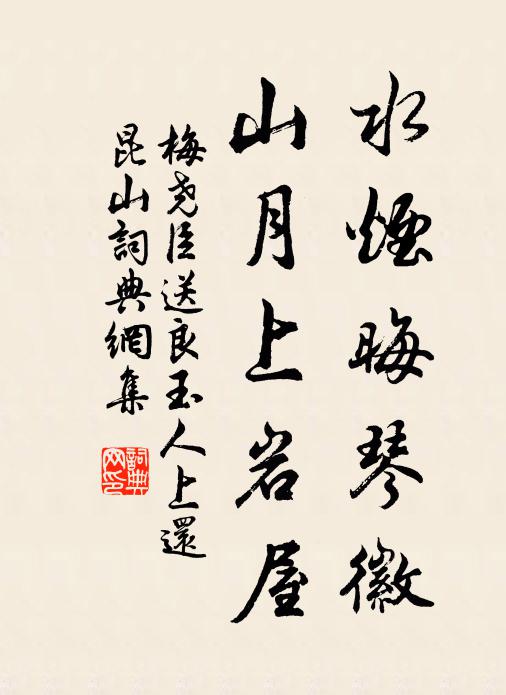 水煙晦琴徽
山月上岩屋
梅堯臣送良玉人上還
昆山詞典網集
詞典網印